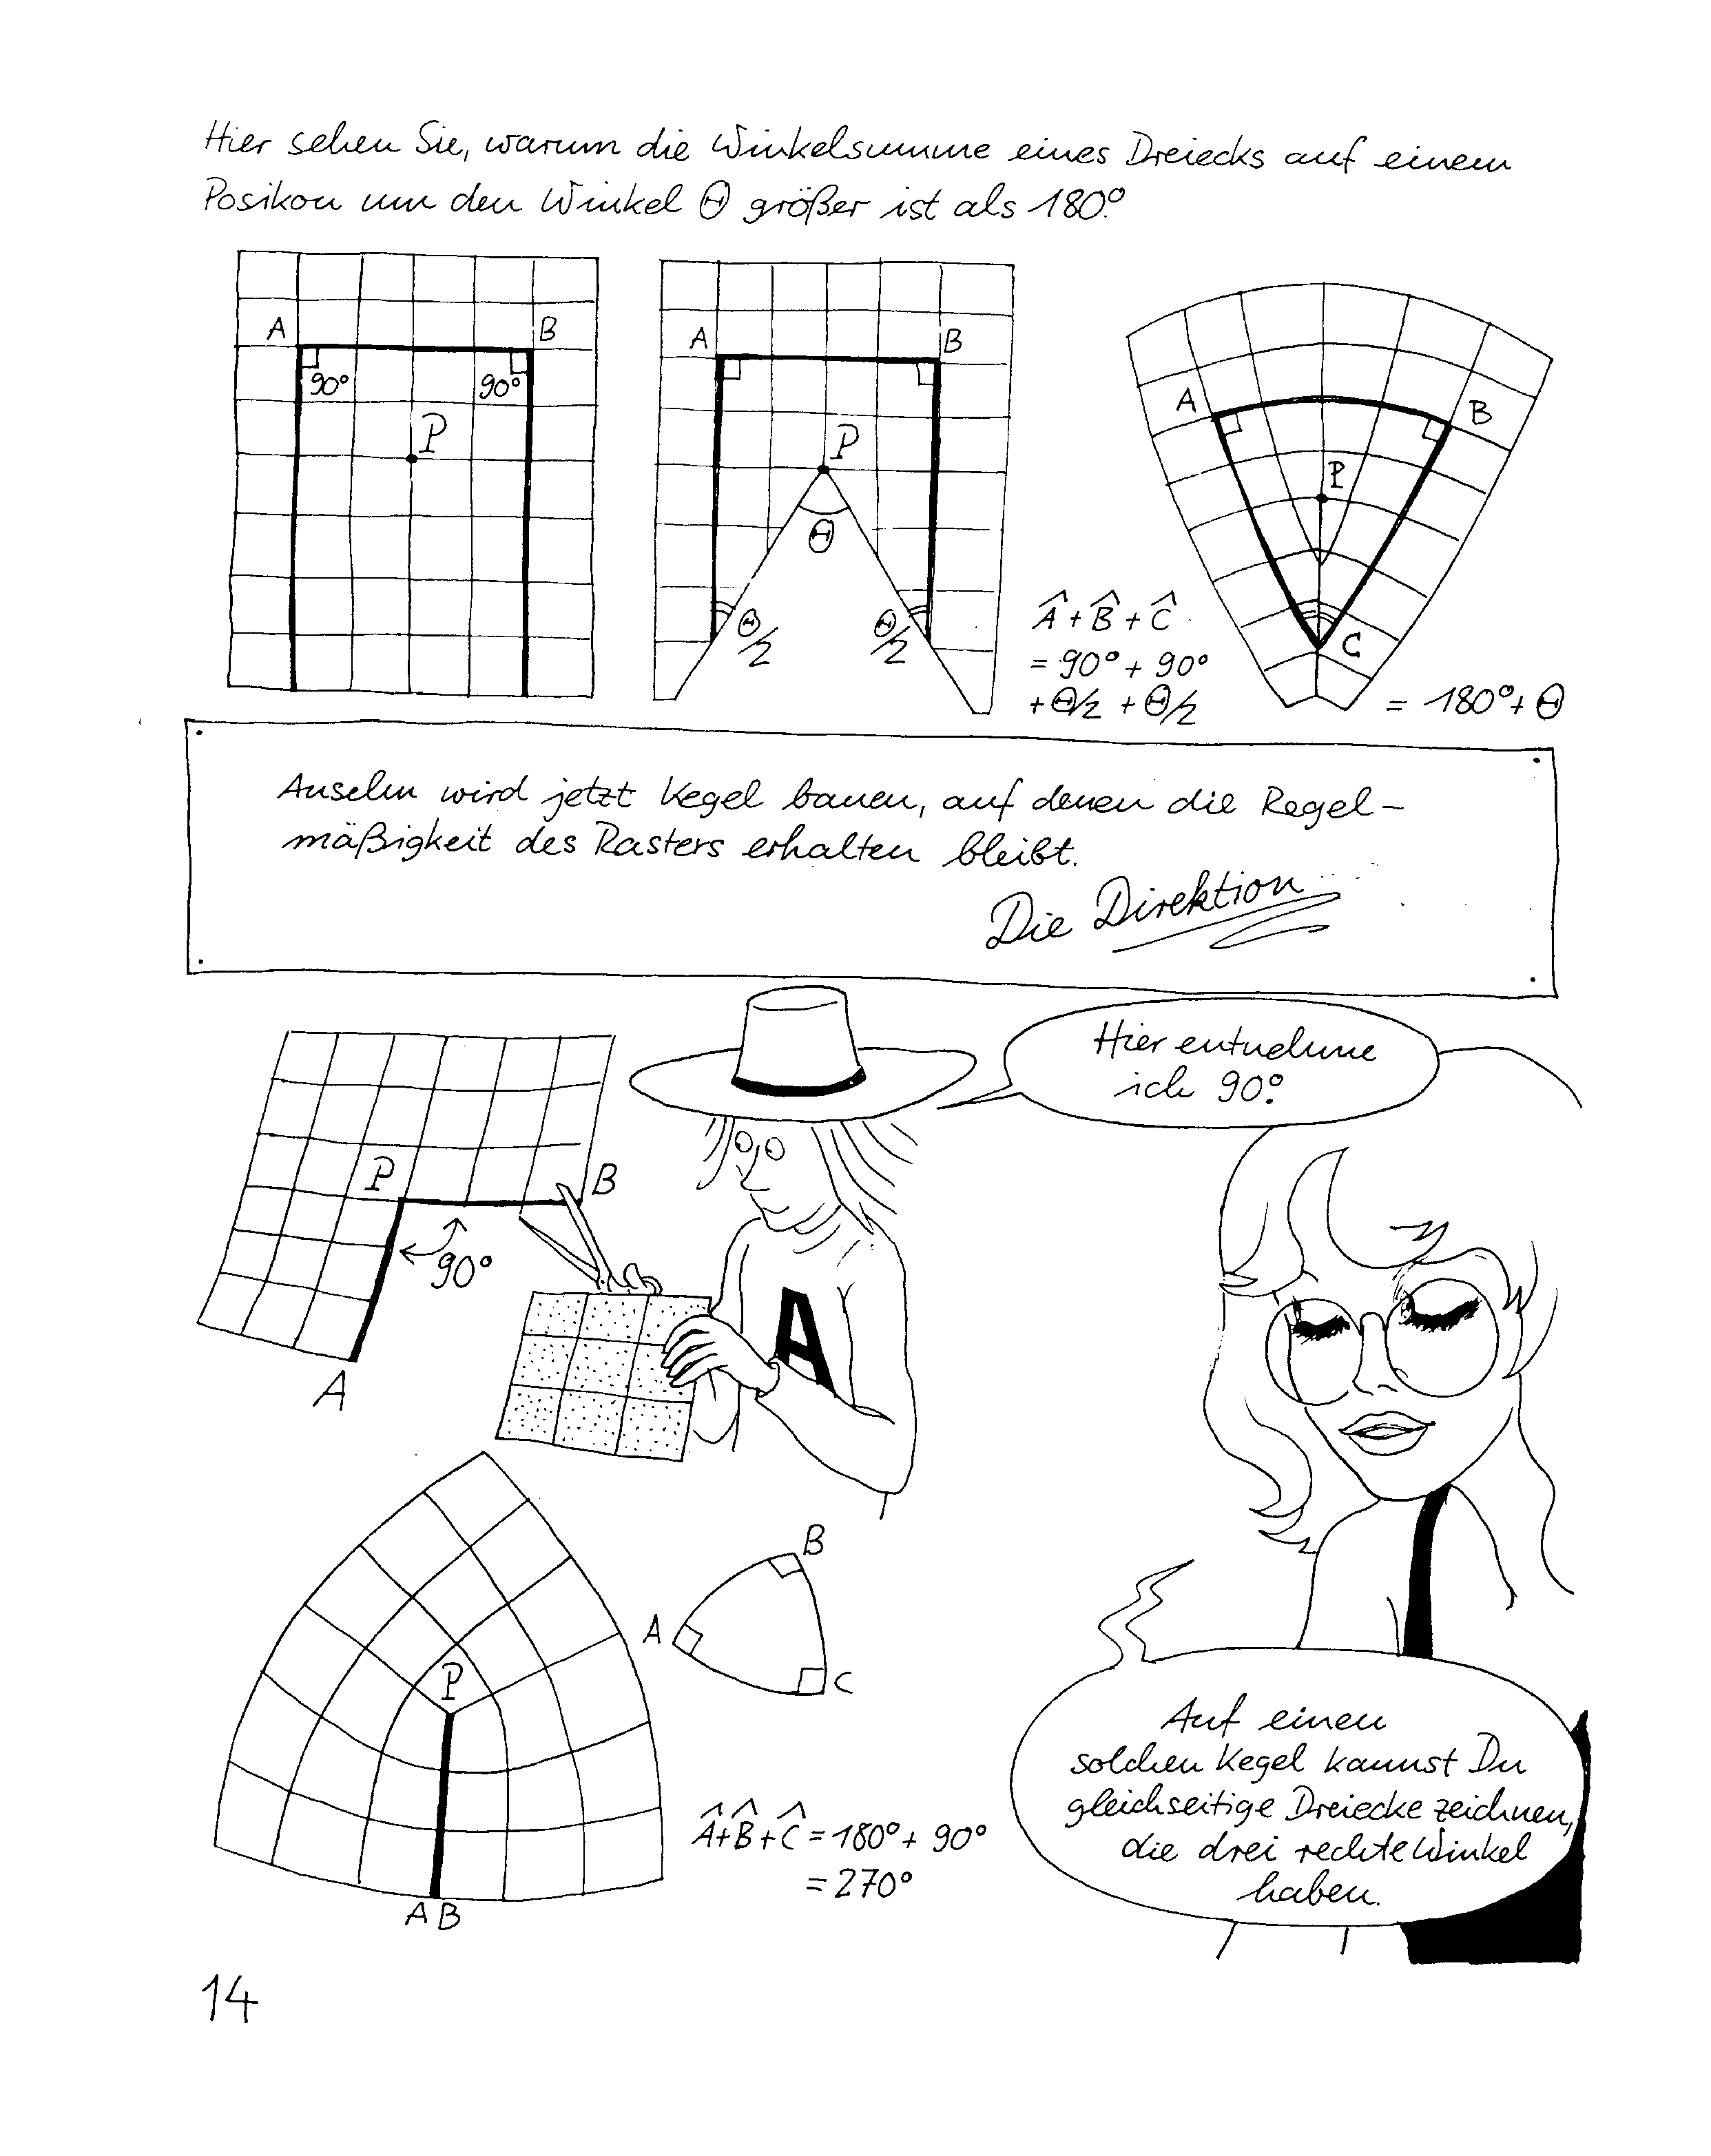 Hier sehen Sie, warum die Winkelsumme eines Dreiecks auf einem
Posikon um den Winkel Θ größer ist als 180°.
A
B
90°
90°
P
A
B
P
Θ
Θ/2
Θ/2
A
B
P
C
Â + B̂ + Ĉ
= 90° + 90°
+ Θ/2 + Θ/2
= 180° + Θ
Anselm wird jetzt Kegel bauen, auf denen die Regel-
mäßigkeit des Rasters erhalten bleibt.
Die Direktion
Hier entnehme
ich 90°.
P
B
90°
A
A
P
A B
B
A
C
Â + B̂ + Ĉ = 180° + 90°
= 270°
Auf einen
solchen Kegel kannst Du
gleichseitige Dreiecke zeichnen,
die drei rechte Winkel
haben.
14